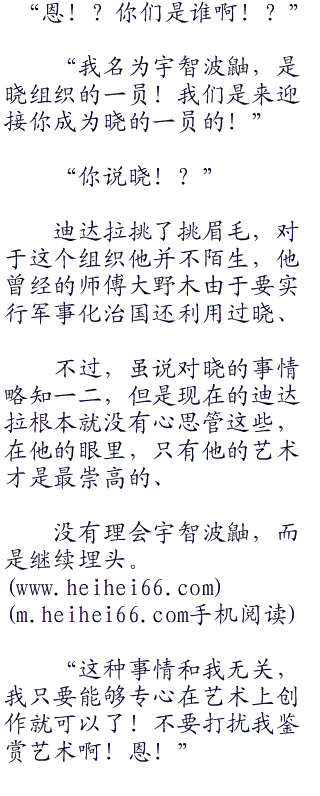 “恩！？你们是谁啊！？”
“我名为宇智波鼬，是
晓组织的一员！我们是来迎
接你成为晓的一员的！”
“你说晓！？”
迪达拉挑了挑眉毛，对
于这个组织他并不陌生，他
曾经的师傅大野木由于要实
行军事化治国还利用过晓、
不过，虽说对晓的事情
略知一二，但是现在的迪达
拉根本就没有心思管这些，
在他的眼里，只有他的艺术
才是最崇高的、
没有理会宇智波鼬，而
是继续埋头。
(www.heihei66.com)
(m.heihei66.com手机阅读)
“这种事情和我无关，
我只要能够专心在艺术上创
作就可以了！不要打扰我鉴
赏艺术啊！恩！”